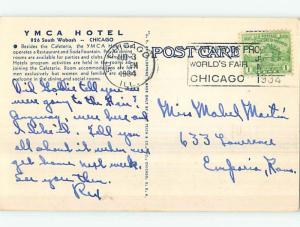 YMCA HOTEL
826 South Wabash - CHICAGO
Besides the Cafeteria, the YMCA Hotel
operates a Restaurant and Soda Fountain. Dining
rooms are available for parties and clubs
Hotels program activities are held in
rooms. Accommodations are for
men exclusively but women and families are
in the dining and social rooms.
CHICAGO
JUL 3
1934
ILL.
POST CARD
WORLD'S FAIR
CHICAGO 1934
Did Lottie tell you we
were going to the Fair?
Anyway, were here and
I like it. Tell you
all about it when we
get home next week.
See you then.
Rex
Miss Mabel Martin
633 Lawrence
Emporia, Kans.